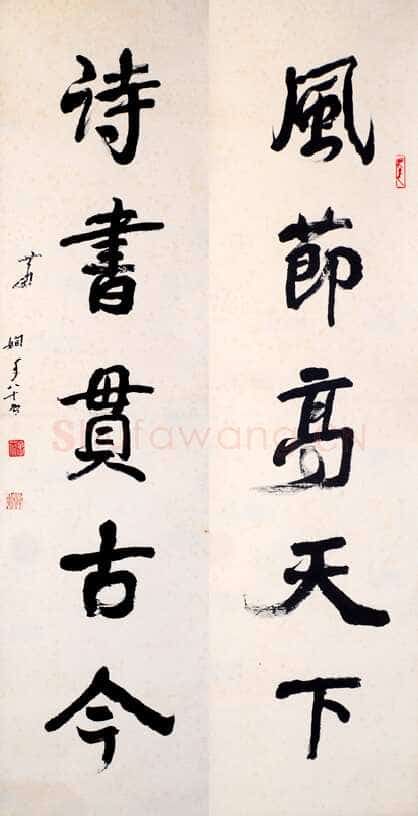 風節高天下
诗書貫古今
蕭嫻年八十
Shufawang.CN